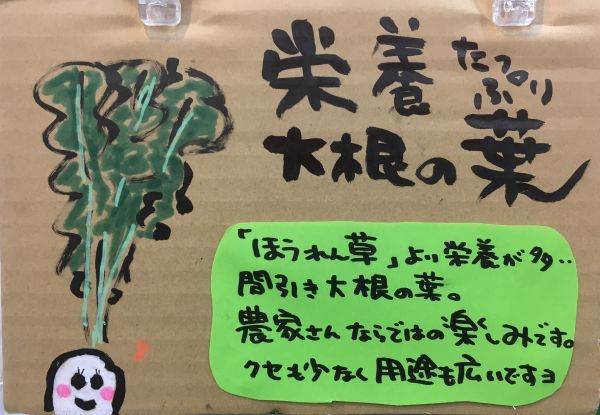 栄養たっぷり
大根の葉
「ほうれん草」より栄養が多‥
間引き大根の葉。
農家さんならではの楽しみです。
クセも少なく用途も広いですヨ